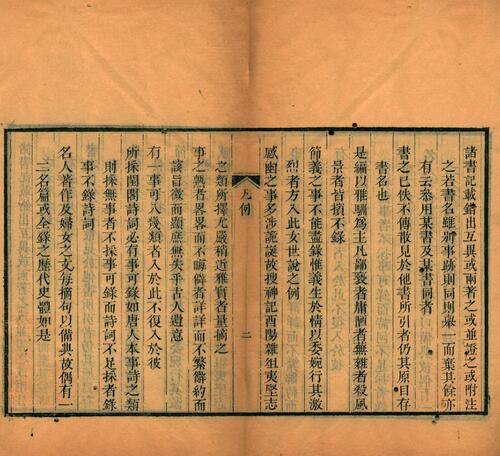 諸書記載錯出互異或兩著之或並證之或附注
之若書名雖新事跡則同則舉一而棄其餘亦
有云叅用某書及某書同者
書之已佚不傳散見於他書所引者仍其原目存
書名也
是編以雅馴為主凡鄙褻者庸陋者無雜者殺風
景者皆損不錄
節義之事不能盡錄惟義生於情以委婉行其激
烈者方入此女世說之例
感幽之事多涉詭誕故搜神記酉陽雜俎夷堅志
凡例
二
之類所擇尤嚴稍近雅實者量摘之
事之熟者畧畧而不晦僻者詳詳而不紊辭約而
該旨微而顯庶無失乎古人遺意
有一事可入幾類者入於此不復入於彼
所採閨閣詩詞必有事可錄如唐人本事詩之類
則採無事者不採事可錄而詩詞不足採者錄
事不錄詩詞
名人著作及婦女之文每摘句以備典故偶有一
二名篇或全錄之歷代史體如是